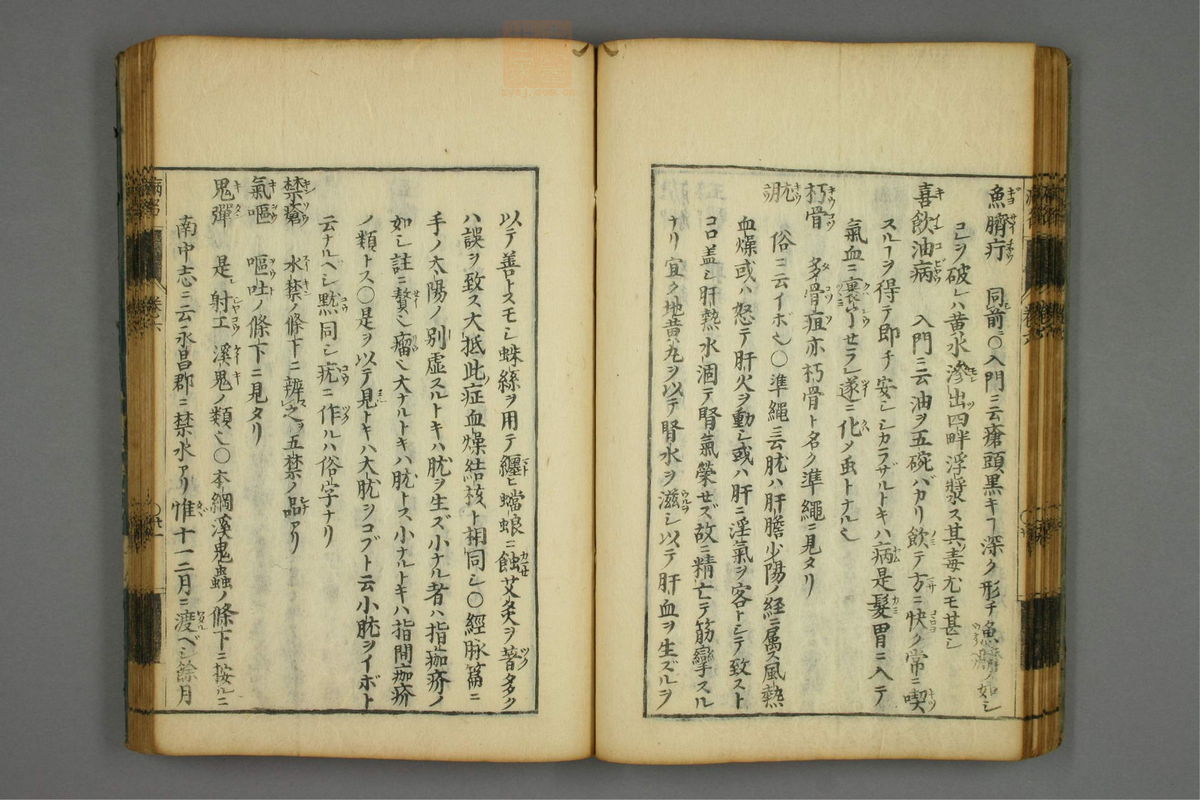 魚臍疔 同前ニ〇入門ニ云瘡頭黒キコ深ク形チ魚臍ノ如シ
コレヲ破レハ黄水滲出四畔浮漿ス其毒尤モ甚シ
喜飲油病 入門ニ云油ヲ五碗バカリ飲テ方ニ快ク常ニ喫
スルコヲ得テ即チ安シシカラサルトキハ病是髮胃ニ入テ
氣血ニ裹了セラレ遂ニ化メ虫トナル也
朽骨 多骨疽亦朽骨ト名ク準繩ニ見タリ
肬 俗ニ云イボ也〇準繩ニ云肬ハ肝膽少陽ノ経ニ属ス風熱
血燥或ハ怒テ肝火ヲ動シ或ハ肝ニ淫氣ヲ客トシテ致スト
コロ盖シ肝熱水涸テ腎氣榮セズ故ニ精亡テ筋攣スル
ナリ宜ク地黄丸ヲ以テ腎水ヲ滋シ以テ肝血ヲ生ズルヲ
以テ善トスモシ蛛絲ヲ用テ纒ヒ蟷螂ニ蝕艾灸ヲ着多ク
ハ誤ヲ致ス大抵此症血燥結核ト相同シ〇經脉篇ニ
手ノ太陽ノ別虚スルトキハ肬ヲ生ズ小ナル者ハ指痂疥ノ
如シ註ニ贅也瘤也大ナルトキハ肬トス小ナルトキハ指間痂疥
ノ類トス〇是ヲ以テ見トキハ大肬ヲコブト云小肬ヲイボト
云ナルヘシ黙同シ疣ニ作ルハ俗字ナリ
禁瘡 水禁ノ條下ニ辨之五禁ノ品アリ
氣嘔 嘔吐ノ條下ニ見タリ
鬼彈 是レ射工溪鬼ノ類也〇本綱溪鬼蟲ノ條下ニ按ルニ
南中志ニ云永昌郡ニ禁水アリ惟十一二月ニ渡ベシ餘月
卷六